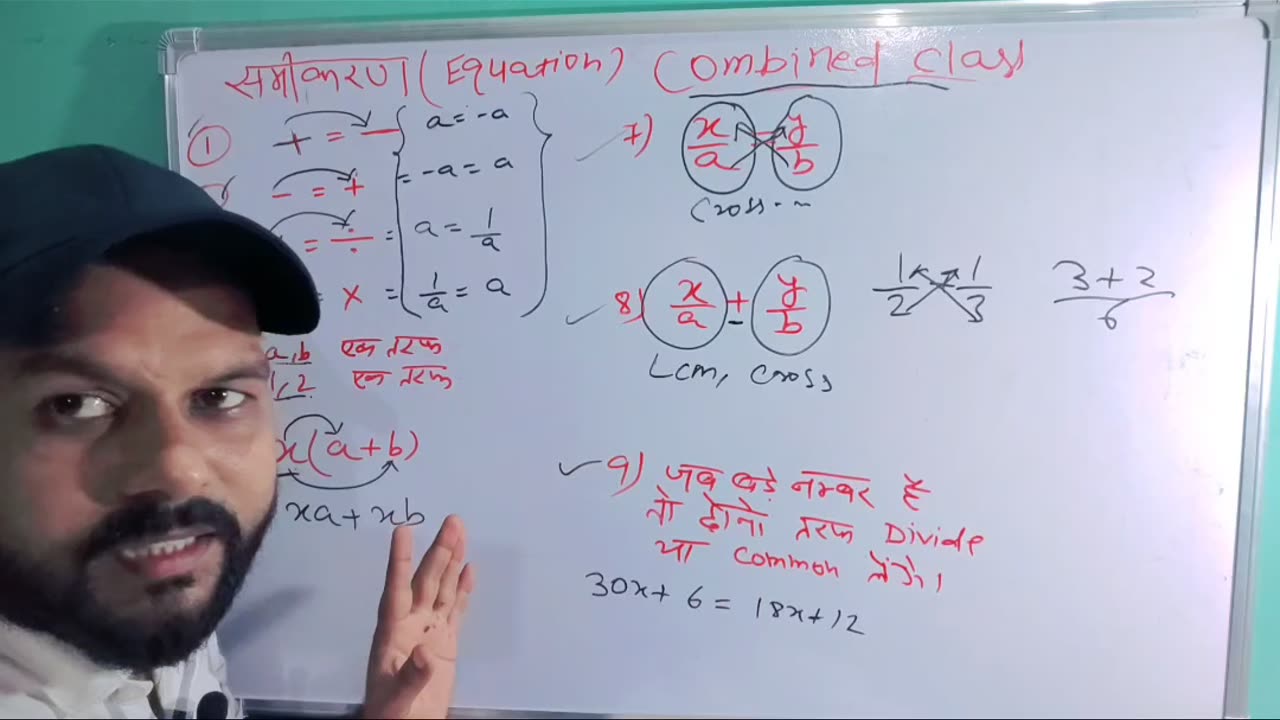 समीकरण (Equation) Combined Class
① + = - a = -a
- = + = -a = a
= ÷ = a = 1/a
= × = 1/a = a
a, b एक तरफ
1, 2 एक तरफ
x(a+b)
xa + xb
7) x/a = y/b
Cross-m
8) x/a ± y/b 1/2 1/3 3+2/6
Lcm, Cross
9) जब बड़े नम्बर है
तो दोनो तरफ Divide
या common लेंगे।
30x + 6 = 18x + 12